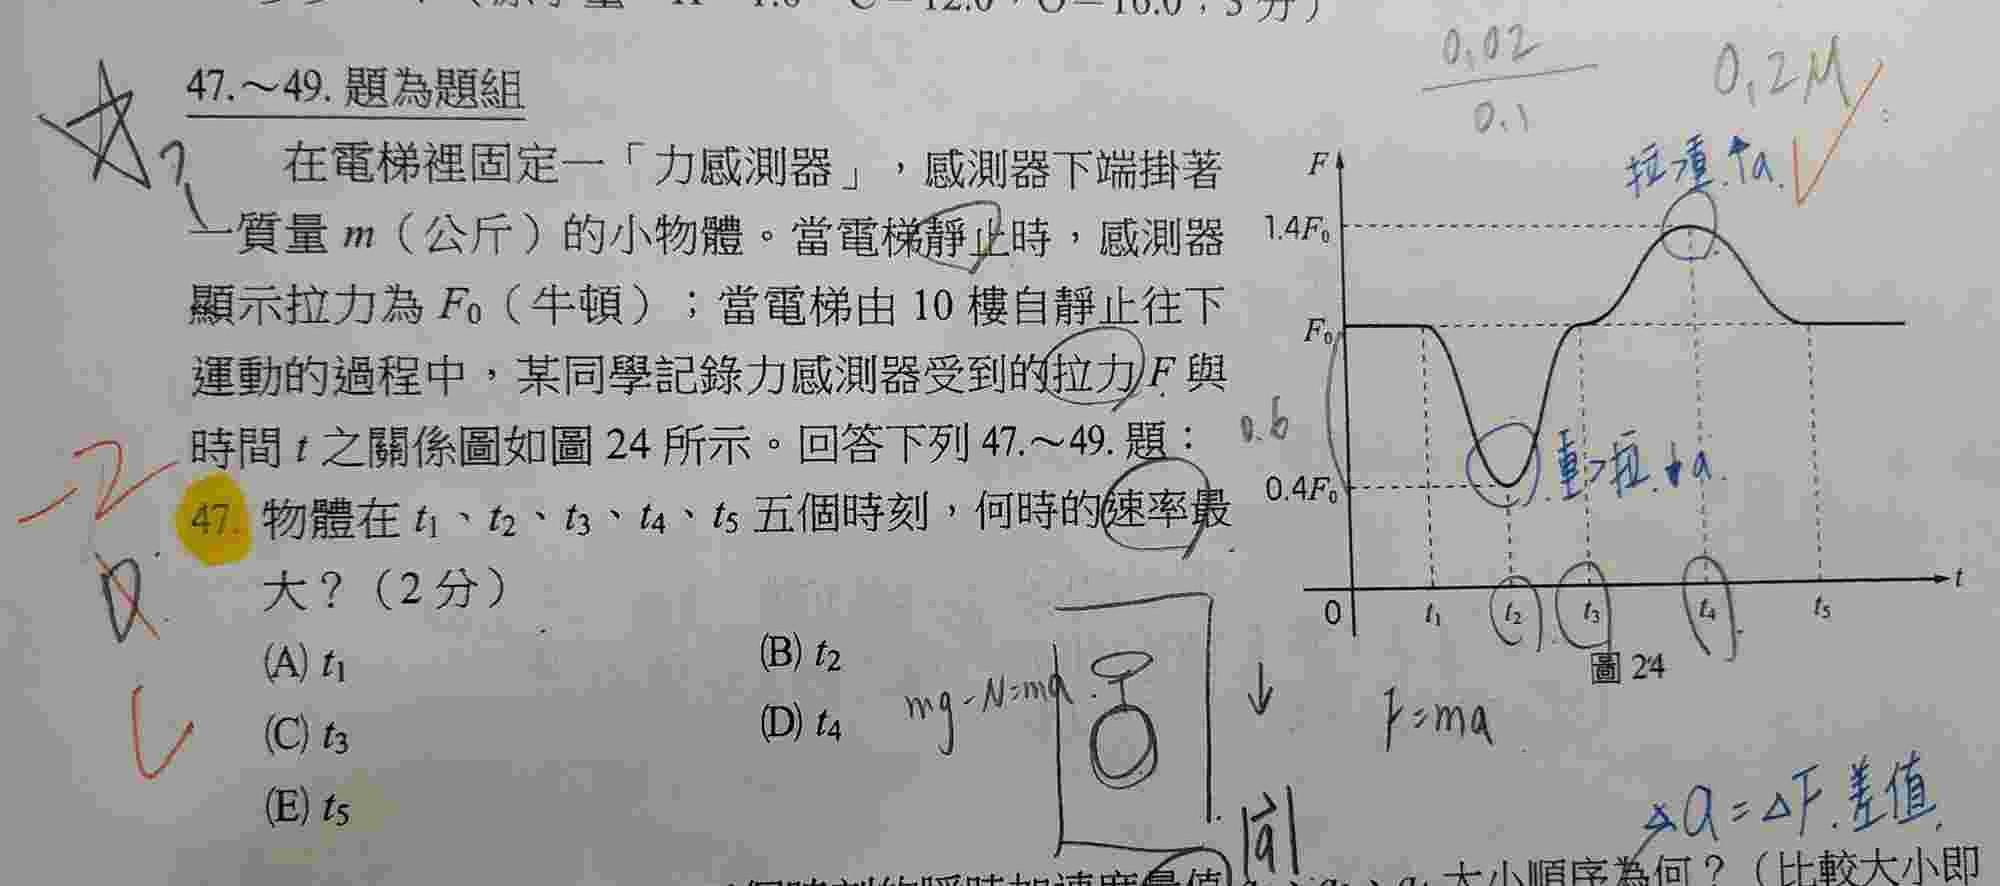 （原子量 H=1.0，C=12.0，O=16.0；3分）
0.02
0.1
0.2M
47.～49. 題為題組
在電梯裡固定一「力感測器」，感測器下端掛著
一質量 m（公斤）的小物體。當電梯靜止時，感測器
顯示拉力為 F₀（牛頓）；當電梯由 10 樓自靜止往下
運動的過程中，某同學記錄力感測器受到的拉力 F 與
時間 t 之關係圖如圖 24 所示。回答下列 47.～49. 題：
-2
47. 物體在 t₁、t₂、t₃、t₄、t₅ 五個時刻，何時的速率最
大？（2 分）
(A) t₁
(B) t₂
(C) t₃
(D) t₄
(E) t₅
mg-N=ma
F
拉>重.↑a.
1.4F₀
F₀
0.6
重>拉.↓a.
0.4F₀
0
t₁
t₂
t₃
t₄
t₅
t
圖 24
F=ma
|a|
△a=△F.差值.
大小順序為何？（比較大小即